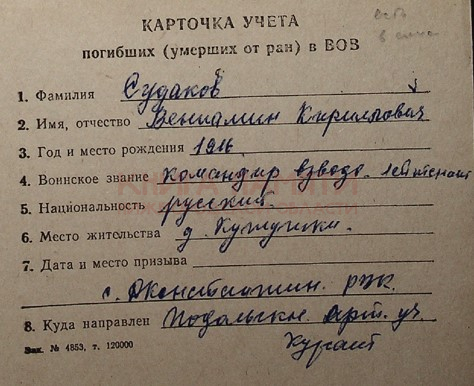 КАРТОЧКА УЧЕТА
погибших (умерших от ран) в ВОВ
1. Фамилия Судаков
2. Имя, отчество Вениамин Кириллович
3. Год и место рождения 1916
4. Воинское звание командир взвода - лейтенант
5. Национальность русский.
6. Место жительства д.
7. Дата и место призыва
с. Константин. РВК.
8. Куда направлен Подольское арт. уч.
Зак. № 4853, т. 120000
Курсант